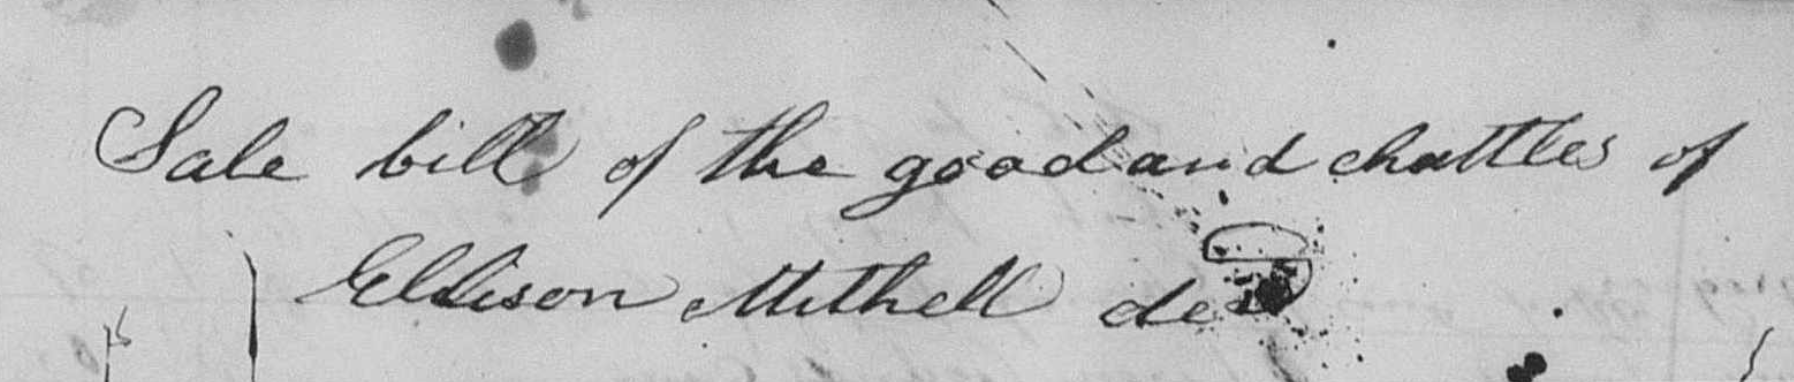 Sale bill of the good and chattles of
Ellison Mithell decd